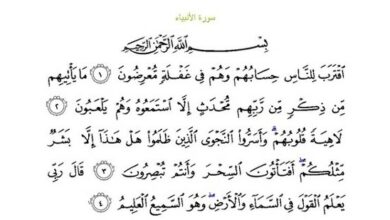 سورة الأنبياء
بِسْمِ اللَّهِ الرَّحْمَٰنِ الرَّحِيمِ
اقْتَرَبَ لِلنَّاسِ حِسَابُهُمْ وَهُمْ فِي غَفْلَةٍ مُعْرِضُونَ ١ مَا يَأْتِيهِمْ
مِنْ ذِكْرٍ مِنْ رَبِّهِمْ مُحْدَثٍ إِلَّا اسْتَمَعُوهُ وَهُمْ يَلْعَبُونَ ٢
لَاهِيَةً قُلُوبُهُمْ وَأَسَرُّوا النَّجْوَى الَّذِينَ ظَلَمُوا هَلْ هَٰذَا إِلَّا بَشَرٌ
مِثْلُكُمْ أَفَتَأْتُونَ السِّحْرَ وَأَنْتُمْ تُبْصِرُونَ ٣ قَالَ رَبِّي
يَعْلَمُ الْقَوْلَ فِي السَّمَاءِ وَالْأَرْضِ وَهُوَ السَّمِيعُ الْعَلِيمُ ٤